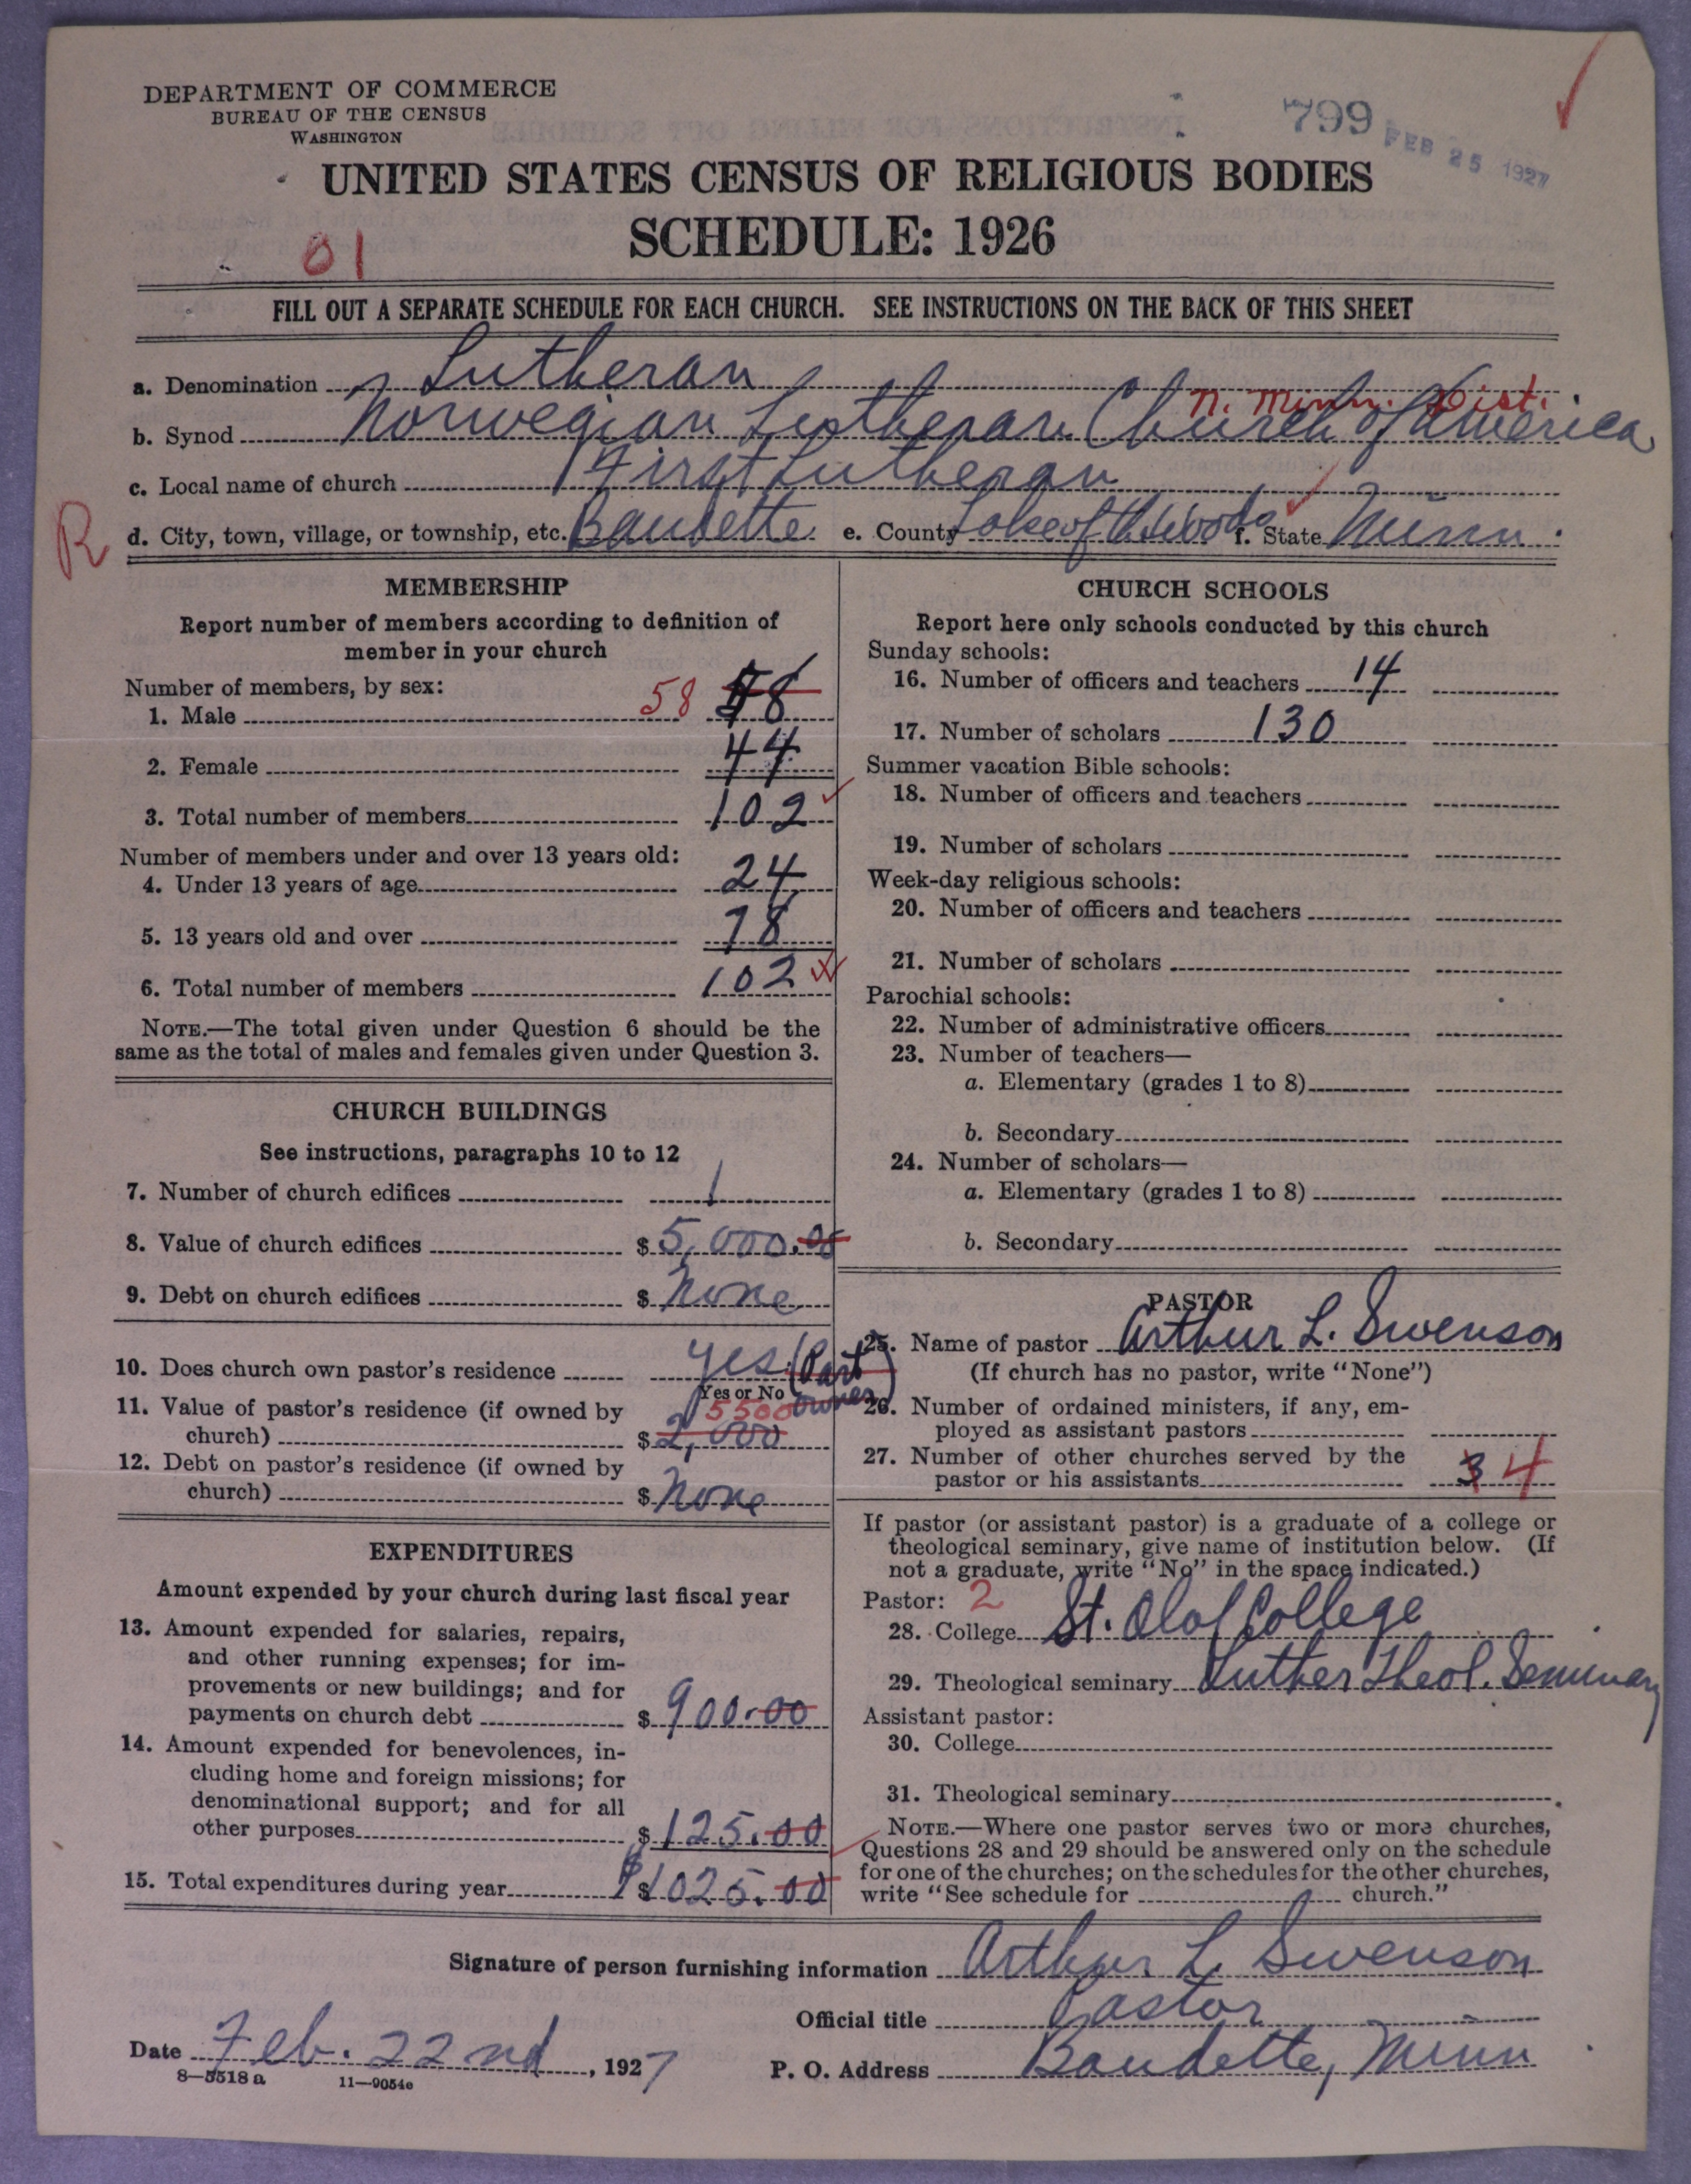 DEPARTMENT OF COMMERCE
BUREAU OF THE CENSUS
WASHINGTON
799
FEB 25 1927
UNITED STATES CENSUS OF RELIGIOUS BODIES
SCHEDULE: 1926
01
FILL OUT A SEPARATE SCHEDULE FOR EACH CHURCH. SEE INSTRUCTIONS ON THE BACK OF THIS SHEET
a. Denomination Lutheran
N. Minn. Dist.
b. Synod Norwegian Lutheran Church of America
c. Local name of church First Lutheran
R
d. City, town, village, or township, etc. Baudette e. County Lake of the Woods f. State Minn.
MEMBERSHIP
Report number of members according to definition of
member in your church
Number of members, by sex:
1. Male 58 58
2. Female 44
3. Total number of members 102
Number of members under and over 13 years old:
4. Under 13 years of age 24
5. 13 years old and over 78
6. Total number of members 102
NOTE.—The total given under Question 6 should be the
same as the total of males and females given under Question 3.
CHURCH BUILDINGS
See instructions, paragraphs 10 to 12
7. Number of church edifices 1
8. Value of church edifices $ 5,000.00
9. Debt on church edifices $ None
10. Does church own pastor's residence Yes (Part
Yes or No owner)
11. Value of pastor's residence (if owned by 5500
church) $ 2,000
12. Debt on pastor's residence (if owned by
church) $ None
EXPENDITURES
Amount expended by your church during last fiscal year
13. Amount expended for salaries, repairs,
and other running expenses; for im-
provements or new buildings; and for
payments on church debt $ 900.00
14. Amount expended for benevolences, in-
cluding home and foreign missions; for
denominational support; and for all
other purposes $ 125.00
15. Total expenditures during year $ $1025.00
CHURCH SCHOOLS
Report here only schools conducted by this church
Sunday schools:
16. Number of officers and teachers 14
17. Number of scholars 130
Summer vacation Bible schools:
18. Number of officers and teachers
19. Number of scholars
Week-day religious schools:
20. Number of officers and teachers
21. Number of scholars
Parochial schools:
22. Number of administrative officers
23. Number of teachers—
a. Elementary (grades 1 to 8)
b. Secondary
24. Number of scholars—
a. Elementary (grades 1 to 8)
b. Secondary
PASTOR
25. Name of pastor Arthur L. Swenson
(If church has no pastor, write "None")
26. Number of ordained ministers, if any, em-
ployed as assistant pastors
27. Number of other churches served by the
pastor or his assistants 3 4
If pastor (or assistant pastor) is a graduate of a college or
theological seminary, give name of institution below. (If
not a graduate, write "No" in the space indicated.)
Pastor: 2
28. College St. Olaf College
29. Theological seminary Luther Theol. Seminary
Assistant pastor:
30. College
31. Theological seminary
NOTE.—Where one pastor serves two or more churches,
Questions 28 and 29 should be answered only on the schedule
for one of the churches; on the schedules for the other churches,
write "See schedule for church."
Signature of person furnishing information Arthur L. Swenson
Official title Pastor
Date Feb. 22nd, 1927
P. O. Address Baudette, Minn
8—5518 a 11—9054e